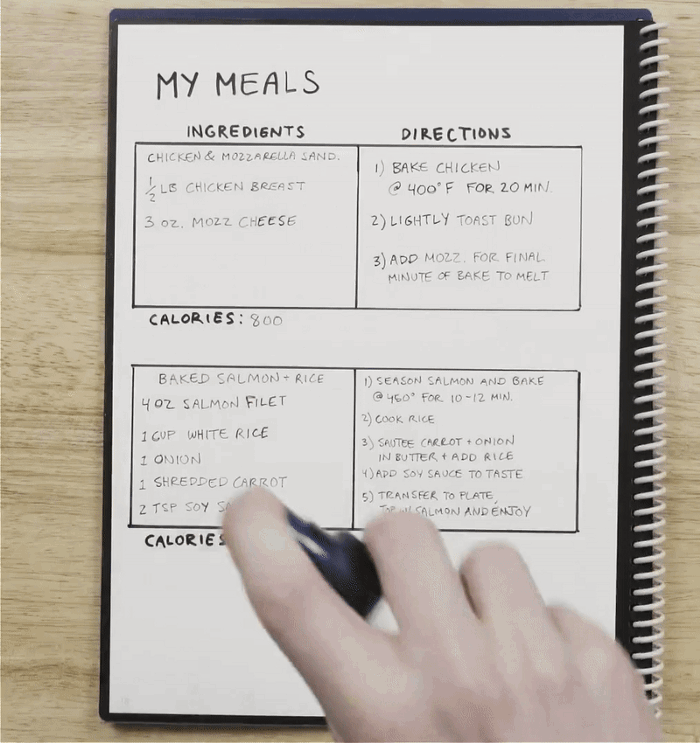 MY MEALS
INGREDIENTS
DIRECTIONS
CHICKEN & MOZZARELLA SAND.
1/2 LB CHICKEN BREAST
3 OZ. MOZZ CHEESE
1) BAKE CHICKEN
@ 400° F FOR 20 MIN.
2) LIGHTLY TOAST BUN
3) ADD MOZZ. FOR FINAL
MINUTE OF BAKE TO MELT
CALORIES: 800
BAKED SALMON + RICE
4 OZ SALMON FILET
1 CUP WHITE RICE
1 ONION
1 SHREDDED CARROT
2 TSP SOY
1) SEASON SALMON AND BAKE
@ 450° FOR 10-12 MIN.
2) COOK RICE
3) SAUTEE CARROT + ONION
IN BUTTER + ADD RICE
4) ADD SOY SAUCE TO TASTE
5) TRANSFER TO PLATE,
SALMON AND ENJOY
CALORIES